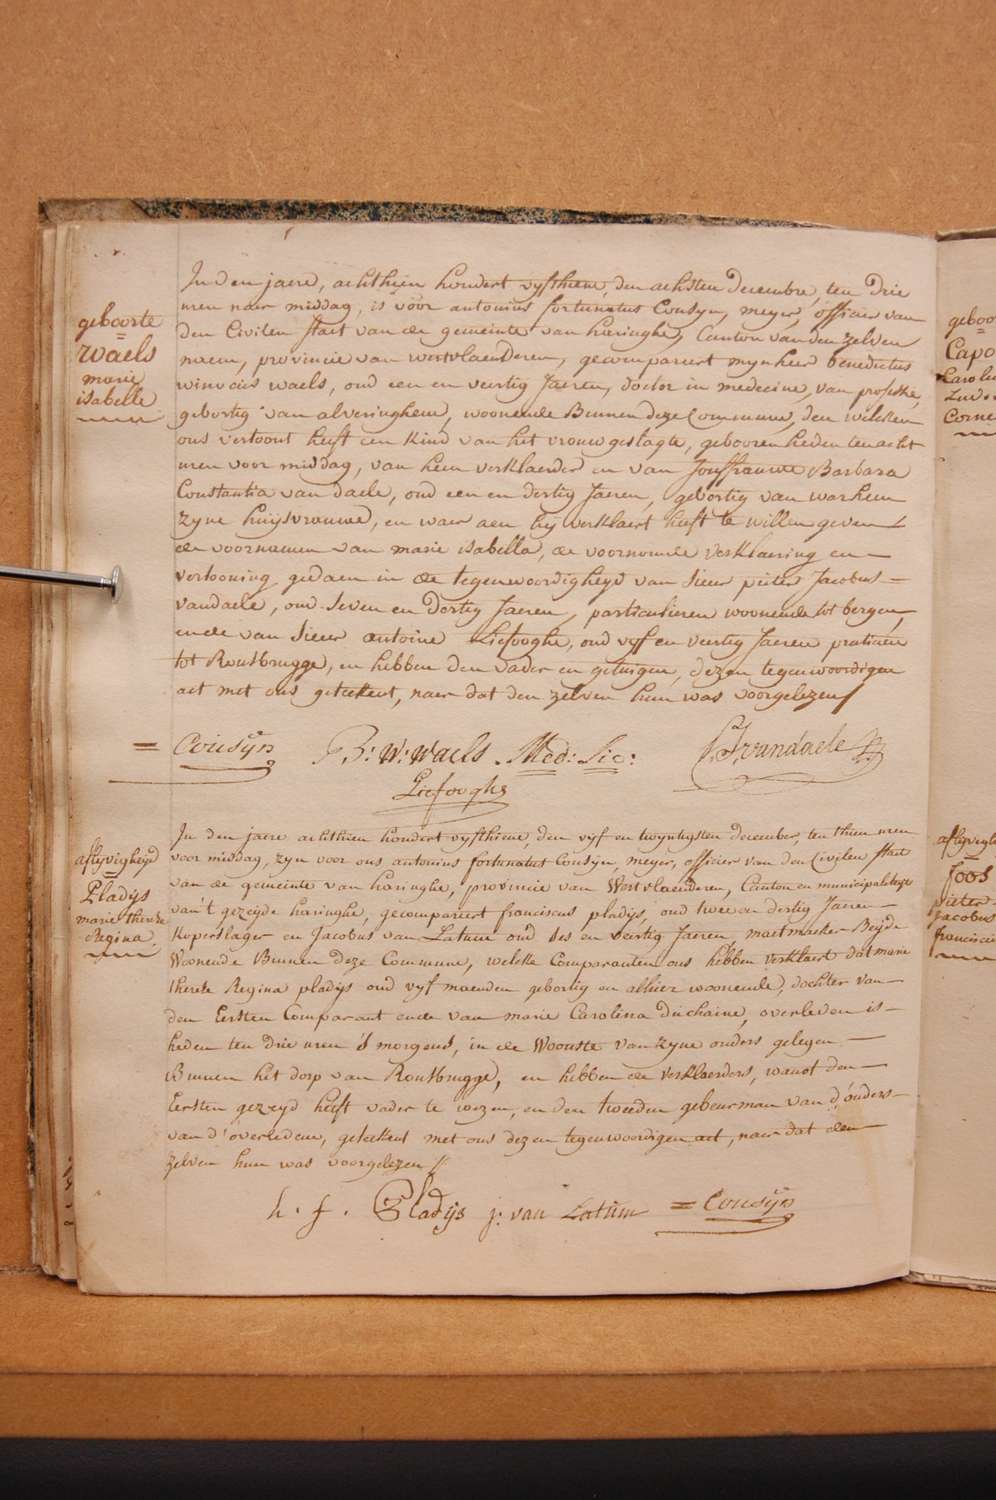 geboorte
=
Waels
marie
isabelle
In den jaere, achthien hondert vyfthiene, den achsten decembre, ten drie
uren naer middag, is voor antonius fortunatus Cousyn, meyer, officier van
den Civilen staet van de gemeinte van haringhe, Canton van den zelven
naem, provincie van westvlaenderen, gecompareert mynheer benedictus
winocus waels, oud een en veertig Jaeren, doctor in medecine, van professie,
gebortig van alveringhem, woonende Binnen deze Commune, den welcken
ons vertoont heeft een Kind van het vrouwgeslagte, gebooren heden ten acht
uren voor middag, van hem verklaerder en van Jouffrauwe Barbara
Constantia van daele, oud een en dertig Jaeren, gebortig van warhem
zyne huijsvrouwe, en waer aen hij verklaert heeft te willen geven
de voornamen van marie isabella, de voornoemde verklaering en
vertooning gedaen in de tegenwoordigheyd van sieur pieter Jacobus
vandaele, oud seven en dertig Jaeren, particulieren woonende tot bergen,
ende van sieur antoine Liefooghe, oud vyf en veertig Jaeren praticien
tot Rousbrugge, en hebben den vader en getuigen, dezen tegenwoordigen
act met ons geteekent, naer dat den zelven hun was voorgelezen/
= Cousÿn B: W: Waels . Med: Lic: P. J. vandaele
Liefooghe
aflyvigheijd
=
Pladÿs
marie therese
Regina
In den jaere achthien hondert vyfthiene, den vyf en twyntigsten december, ten thien uren
voor middag, zyn voor ons antonius fortunatus Cousÿn, meyer, officier van den Civilen staet
van de gemeinte van haringhe, provincie van Westvlaenderen, Canton en municipaliteyt
van't gezeyde haringhe, gecompareert franciscus pladÿs, oud twee en dertig Jaeren
Koperslager en Jacobus van Latum oud ses en veertig Jaeren maetmaeker Beÿde
Woonende Binnen deze Commune, welcke Comparanten ons hebben verklaert dat marie
therese Regina pladÿs oud vyf maenden gebortig en alhier woonende, dochter van
den Eersten Comparant ende van marie Carolina duchaine, overleden is
heden ten drie uren s' morgens, in de Woonste van zyne ouders gelegen
Binnen het dorp van Rousbrugge, en hebben de verklaerders, wanof den
Eersten gezeyd heeft vader te wezen, en den tweeden gebeurman van d'ouders
van d'overledene, geteekent met ons dezen tegenwoordigen act, naer dat den
zelven hun was voorgelezen //
h. f. Pladijs j: van Latum = Cousÿn
=
Capo
Corne
aflyvigh
Joos
pieter
jacobus
francisc